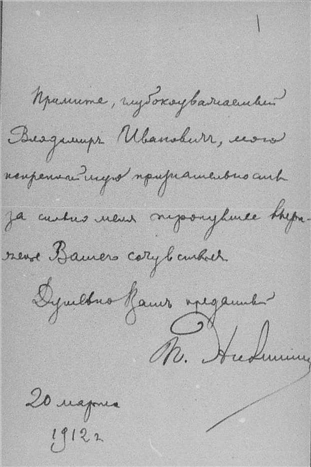 1
Примите, глубокоуважаемый
Владимиръ Ивановичъ, мою
искреннюю признательность
за сильно меня тронувшее выра-
женiе Вашего сочувствiя.
Душевно Вашъ преданный
20 марта
1912 г